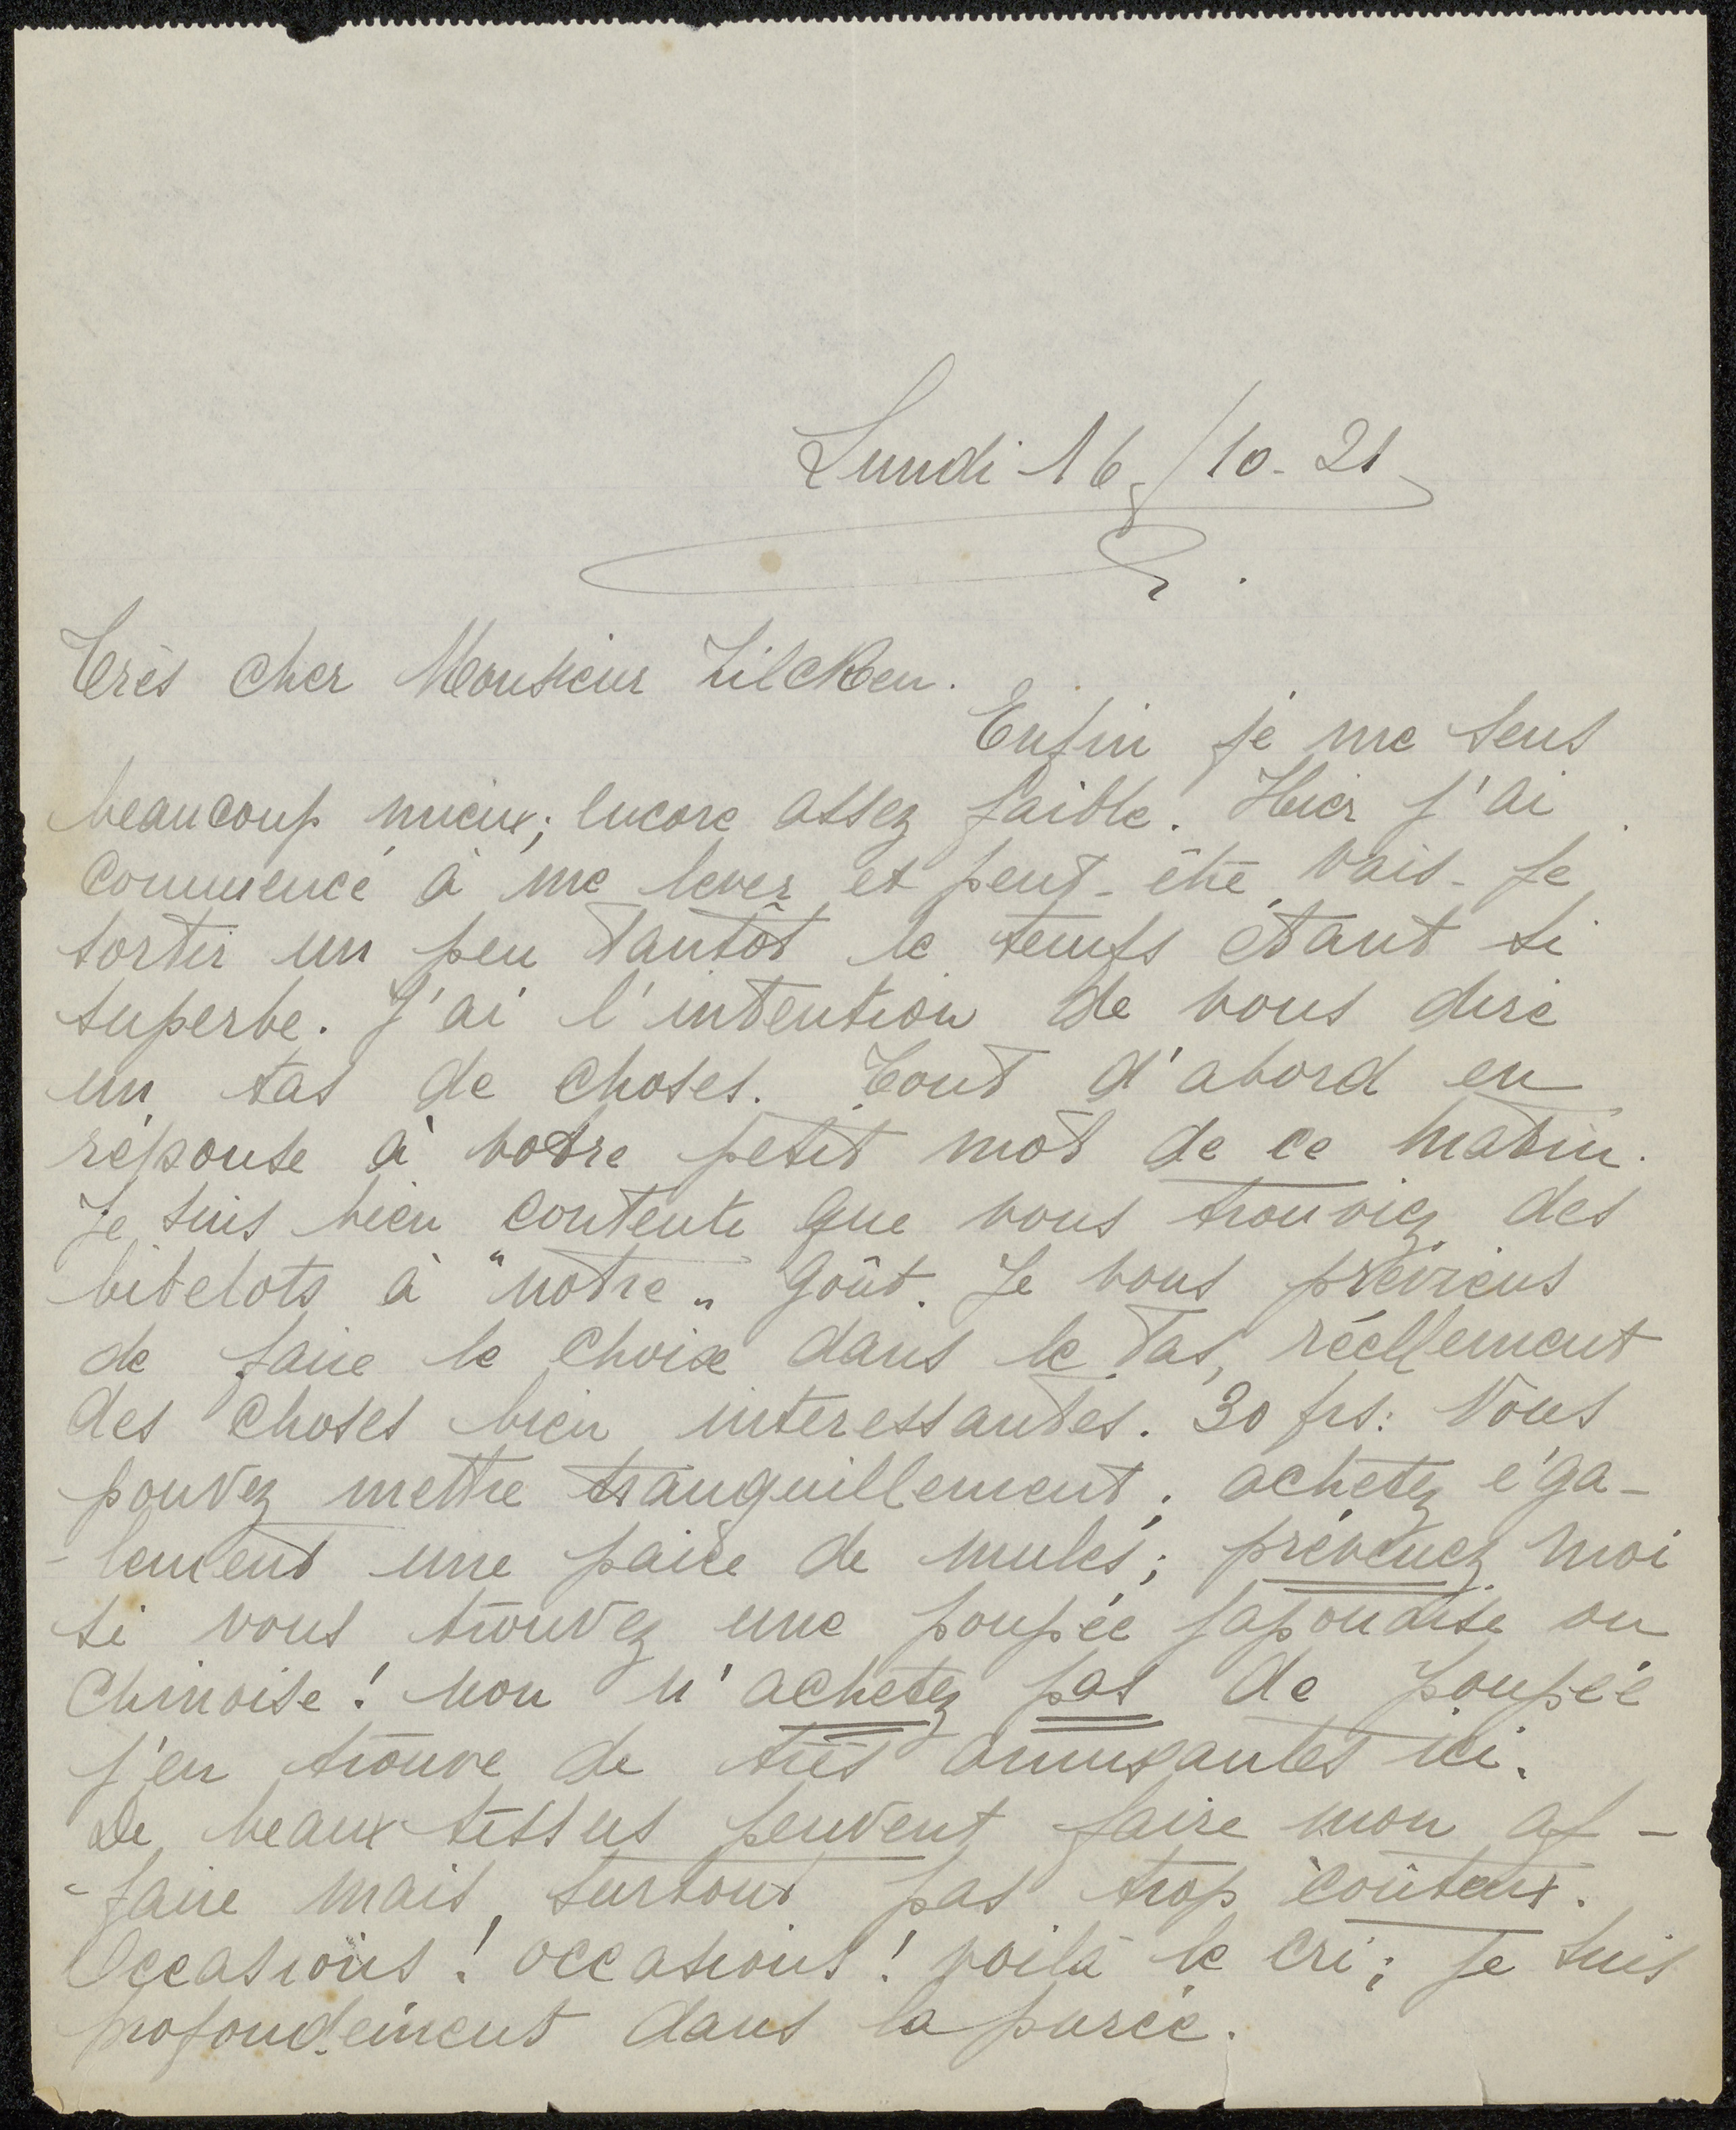 Lundi 16/10-21
Très cher Monsieur Zilcken.
Enfin je me sens
beaucoup mieux; encore assez faible. Hier j'ai
commencé à me lever et peut-être vais-je
sortir un peu tantôt le temps étant si
superbe. J'ai l'intention de vous dire
un tas de choses. Tout d'abord en
réponse à votre petit mot de ce matin.
Je suis bien contente que vous trouviez des
bibelots à "notre" goût. Je vous préviens
de faire le choix dans le tas, réellement
des choses bien interessantes. 30 frs: Vous
pouvez mettre tranquillement; achetez éga-
-lement une paire de mules; prévenez moi
si vous trouvez une poupée japonaise ou
Chinoise! non n'achetez pas de poupée
j'en trouve de très amusantes ici.
De beaux tissus peuvent faire mon af-
-faire mais, surtout pas trop coûteux.
Occasions! occasions! voilà le cri; je suis
profondément dans la purée.